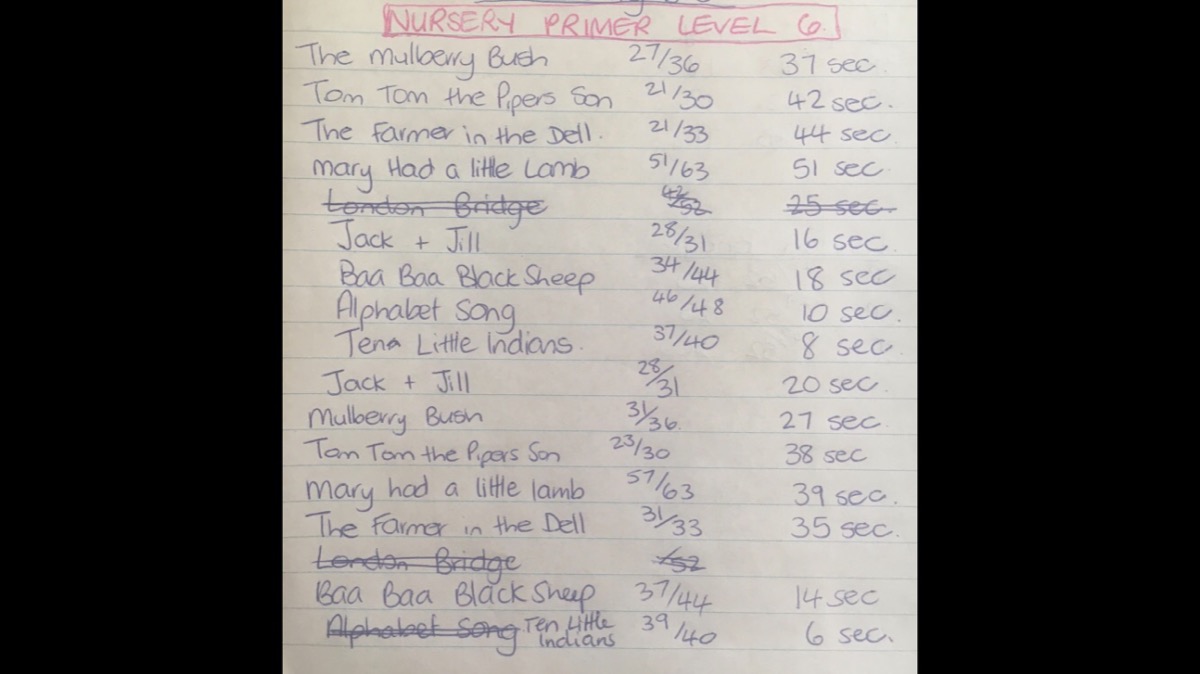 NURSERY PRIMER LEVEL 6.
The Mulberry Bush 27/36 37 sec.
Tom Tom the Pipers Son 21/30 42 sec.
The Farmer in the Dell. 21/33 44 sec.
Mary Had a little Lamb 51/63 51 sec
London Bridge 42/52 25 sec.
Jack + Jill 28/31 16 sec.
Baa Baa Black Sheep 34/44 18 sec
Alphabet Song 46/48 10 sec.
Ten Little Indians. 37/40 8 sec.
Jack + Jill 28/31 20 sec.
Mulberry Bush 31/36. 27 sec
Tom Tom the Pipers Son 23/30 38 sec
Mary had a little lamb 57/63 39 sec.
The Farmer in the Dell 31/33 35 sec.
London Bridge /52
Baa Baa Black Sheep 37/44 14 sec
Alphabet Song Ten Little Indians 39/40 6 sec.